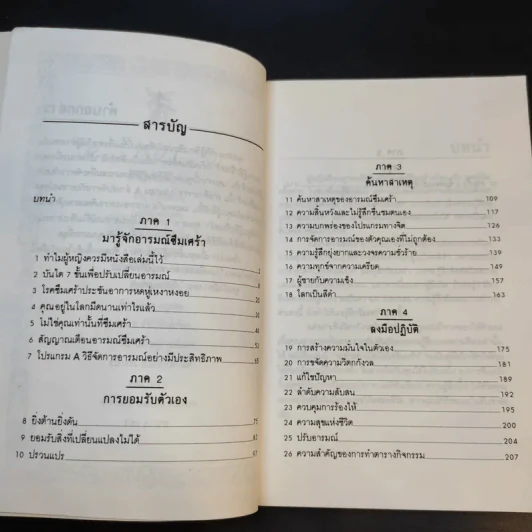 สารบัญ
บทนำ
ภาค 1
มารู้จักอารมณ์ซึมเศร้า
1 ทำไมผู้หญิงควรมีหนังสือเล่มนี้ไว้
2 บันได 7 ขั้นเพื่อปรับเปลี่ยนอารมณ์
3 โรคซึมเศร้าประชันอาการหดหู่เหงาหงอย
4 คุณอยู่ในโลกมืดนานเท่าไรแล้ว
5 ไม่ใช่คุณเท่านั้นที่ซึมเศร้า
6 สัญญาณเตือนอารมณ์ซึมเศร้า
7 โปรแกรม A วิธีจัดการอารมณ์อย่างมีประสิทธิภาพ
ภาค 2
การยอมรับตัวเอง
8 ยิ่งต้านยิ่งดัน
9 ยอมรับสิ่งที่เปลี่ยนแปลงไม่ได้
10 ปรวนแปร
ภาค 3
ค้นหาสาเหตุ
11 ค้นหาสาเหตุของอารมณ์ซึมเศร้า 109
12 ความสิ้นหวังและไม่รู้สึกชื่นชมตนเอง 117
13 ความบกพร่องของโปรแกรมทางจิต 127
14 การจัดการอารมณ์ของตัวคุณเองที่ไม่ถูกต้อง 133
15 ความรู้สึกยุ่งยากและวงจรความชั่วร้าย 139
16 ความทุกข์จากความเครียด 149
17 ผู้ชายกับความเชิง 157
18 โลกเป็นสีดำ 163
ภาค 4
ลงมือปฏิบัติ
19 การสร้างความมั่นใจในตัวเอง 175
20 การขจัดความวิตกกังวล 181
21 แก้ไขปัญหา 187
22 ลำดับความสับสน 191
23 ควบคุมการร้องไห้ 195
24 ความสุขแห่งชีวิต 200
25 ปรับอารมณ์ 204
26 ความสำคัญของการทำตารางกิจกรรม 207